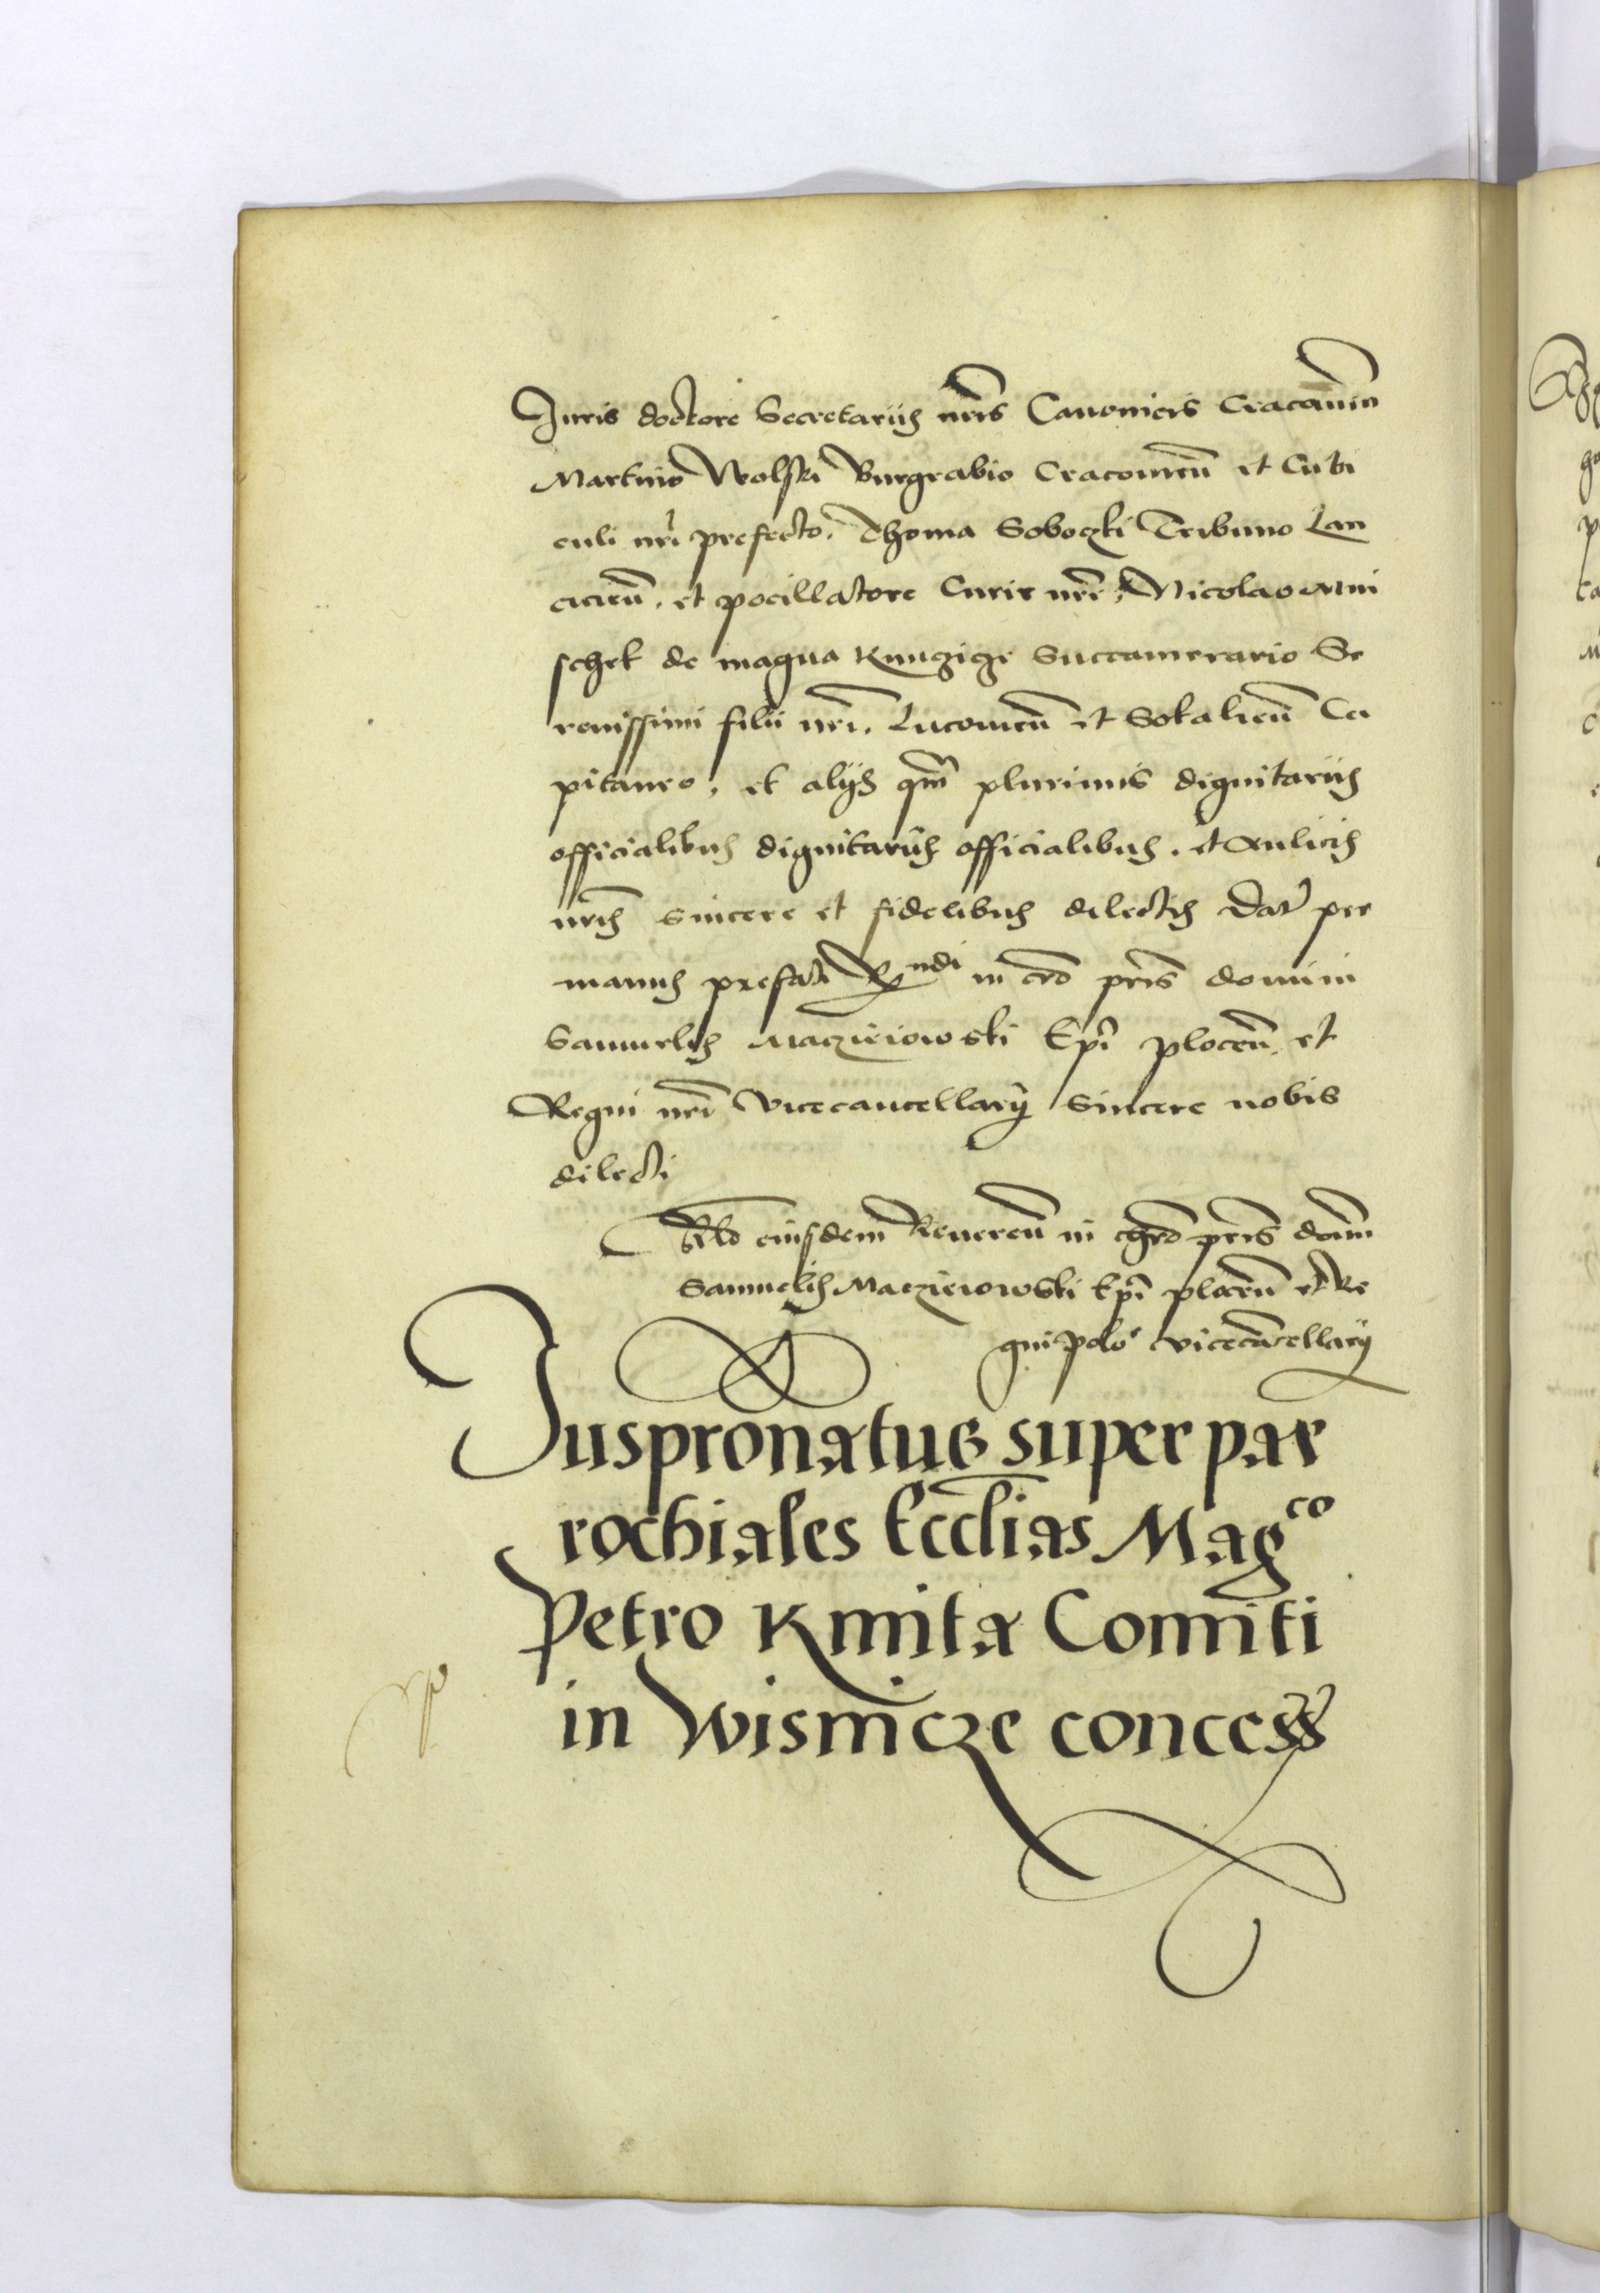 Iuris doctore Secretariis nris Canonicis Cracouien
Martino Wolski Burgrabio Cracouien et Cubi
culi nri prefecto. Thoma Soboczki Tribuno Lan
cicien. et pocillatore Curie nre, Nicolao Mni
schek de magna Kunczicze Succamerario Se
renissimi filii nri. Lucouien et Sokalien Ca
pitaneo, et alijs qm plurimis dignitariis
officialibus dignitariis officialibus. et Aulicis
nris sincere et fidelibus dilectis Dat per
manus prefati Rndi in cro pris domini
Samuelis Maczieiowski Epi plocen. et
Regni nri Vicecancellarij sincere nobis
dilecti
Rlo eiusdem Reueren in chro pris domi
Samuelis Maczieiowski Epi plocen et Re
gni polo vicecancellarij
Juspronatus super par
rochiales Ecclias Mag co
Petro Kmita Comiti
in Wismicze concess